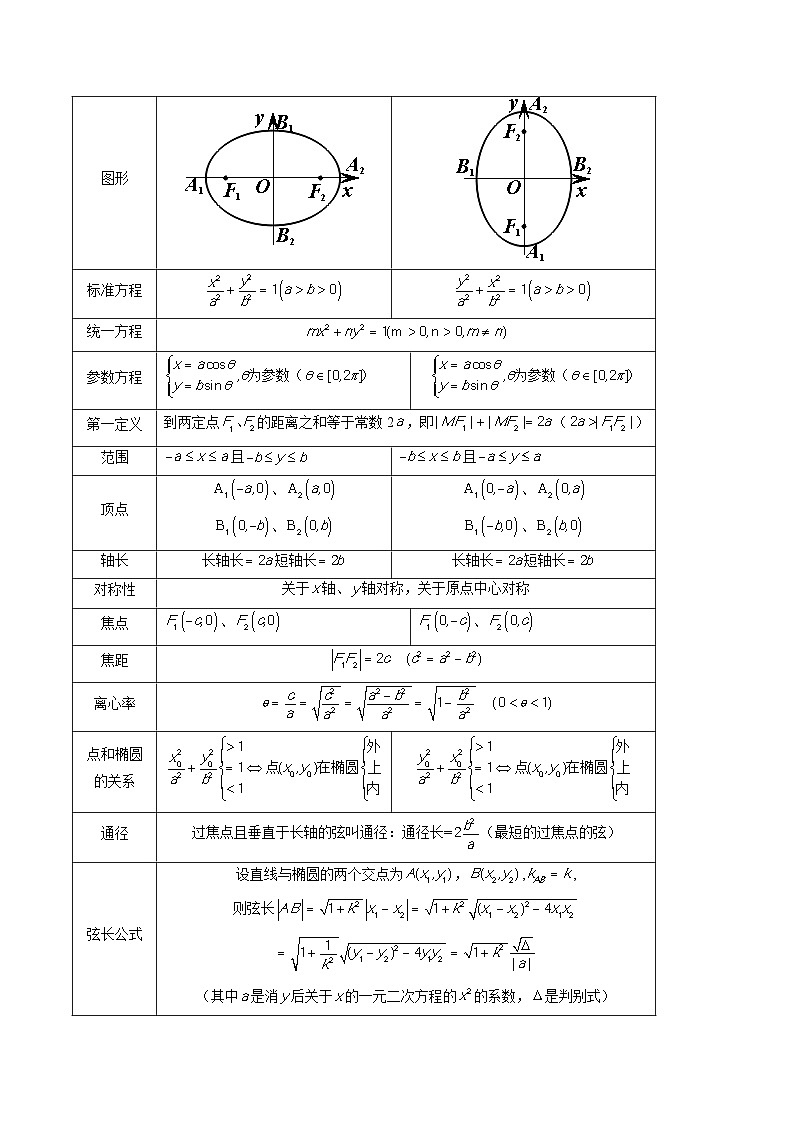 图形
y B₁ A₁ F₁ O F₂ A₂ x B₂
y A₂ F₂ B₁ B₂ O x F₁ A₁
标准方程 x²/a² + y²/b² = 1(a > b > 0) y²/a² + x²/b² = 1(a > b > 0)
统一方程 mx² + ny² = 1(m > 0,n > 0,m ≠ n)
参数方程 {x = a cosθ, y = b sinθ ,θ为参数(θ∈[0,2π]) {x = a cosθ, y = b sinθ ,θ为参数(θ∈[0,2π])
第一定义 到两定点F₁、F₂的距离之和等于常数2a,即|MF₁|+|MF₂|=2a(2a>|F₁F₂|)
范围 −a ≤ x ≤ a且−b ≤ y ≤ b −b ≤ x ≤ b且−a ≤ y ≤ a
顶点
A₁(−a,0)、A₂(a,0) A₁(0,−a)、A₂(0,a)
B₁(0,−b)、B₂(0,b) B₁(−b,0)、B₂(b,0)
轴长 长轴长=2a短轴长=2b 长轴长=2a短轴长=2b
对称性 关于x轴、y轴对称,关于原点中心对称
焦点 F₁(−c,0)、F₂(c,0) F₁(0,−c)、F₂(0,c)
焦距 |F₁F₂| = 2c (c² = a² − b²)
离心率 e = c/a = √(c²/a²) = √((a² − b²)/a²) = √(1 − b²/a²) (0 < e < 1)
点和椭圆
的关系
x₀²/a² + y₀²/b² {> 1, = 1, < 1 ⇔ 点(x₀,y₀)在椭圆{外 上 内
y₀²/a² + x₀²/b² {> 1, = 1, < 1 ⇔ 点(x₀,y₀)在椭圆{外 上 内
通径 过焦点且垂直于长轴的弦叫通径:通径长=2b²/a(最短的过焦点的弦)
弦长公式
设直线与椭圆的两个交点为A(x₁,y₁),B(x₂,y₂),k_AB = k,
则弦长|AB| = √(1+k²)|x₁ − x₂| = √(1+k²)√((x₁ − x₂)² − 4x₁x₂)
= √(1+1/k²)√((y₁ − y₂)² − 4y₁y₂) = √(1+k²) √Δ/|a|
(其中a是消y后关于x的一元二次方程的x²的系数,Δ是判别式)